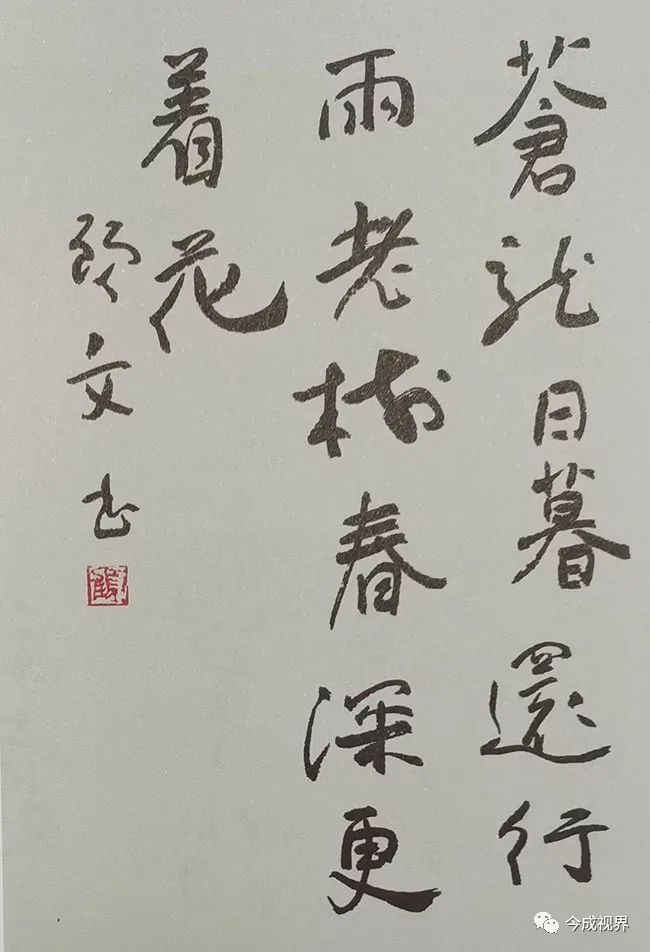 蒼龍日暮還行
雨老樹春深更
着花
文书
今成视界